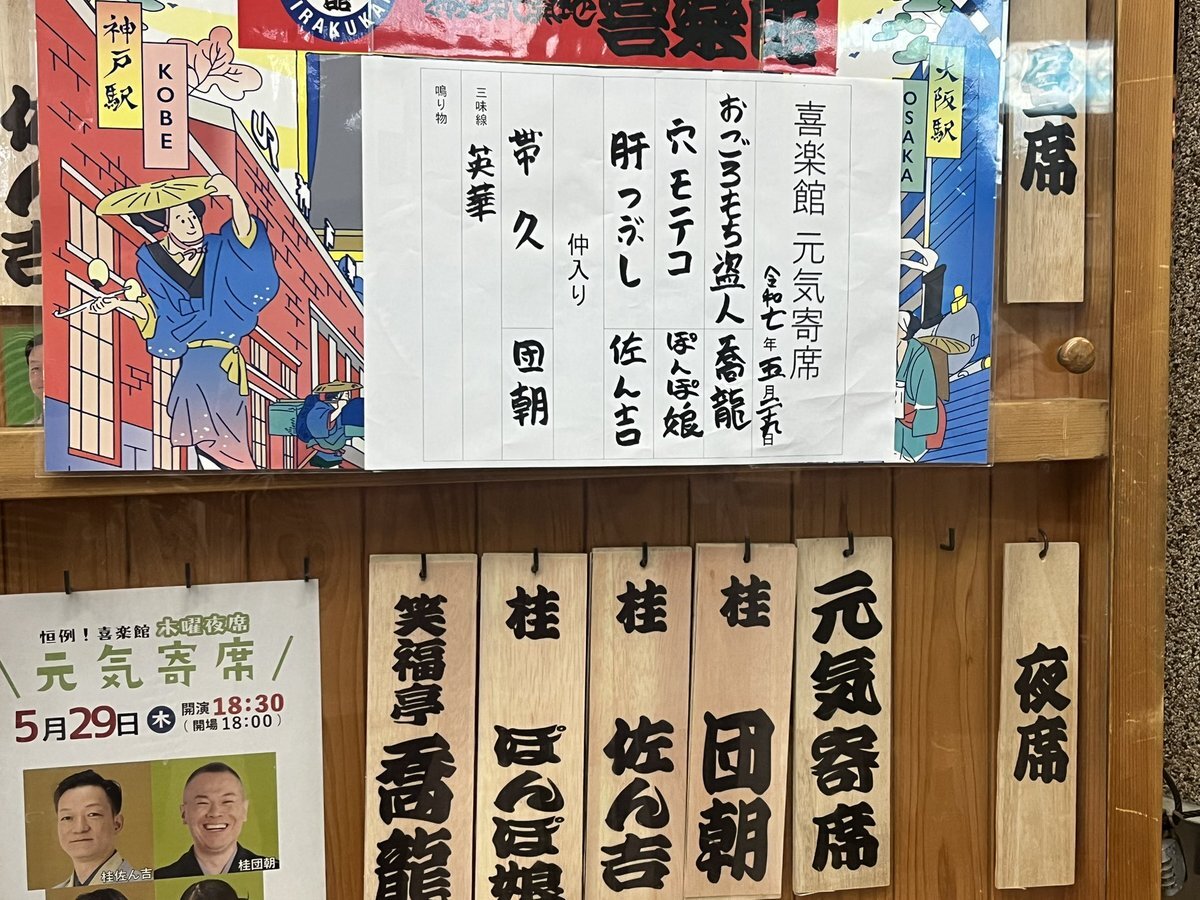 喜楽館
神戸駅
KOBE
大阪駅
OSAKA
喜楽館 元気寄席
令和七年五月二十九日
おごろもち盗人 喬龍
穴 モテコ ぽんぽ娘
肝つぶし 佐ん吉
仲入り
帯久 団朝
三味線 英華
鳴り物
昼席
夜席
元気寄席
桂 団朝
桂 佐ん吉
桂 ぽんぽ娘
笑福亭 喬龍
恒例！喜楽館 木曜夜席
元気寄席
5月29日 木 開演 18:30
(開場 18:00)
桂佐ん吉
桂団朝